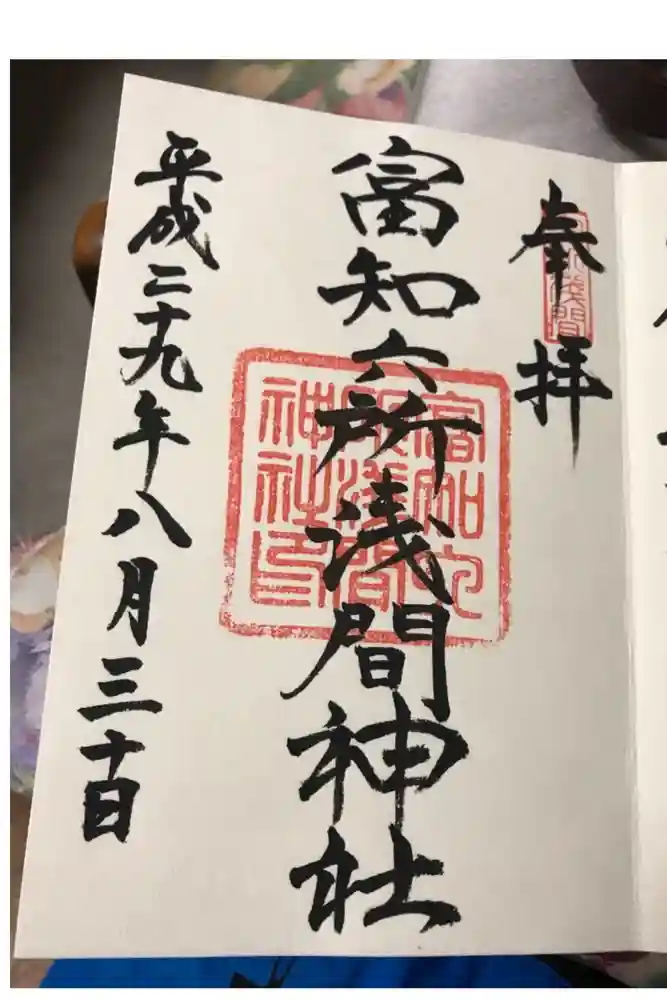 奉拝
富知六所浅間神社
平成二十九年八月三十日
富知六
所浅間
神社印